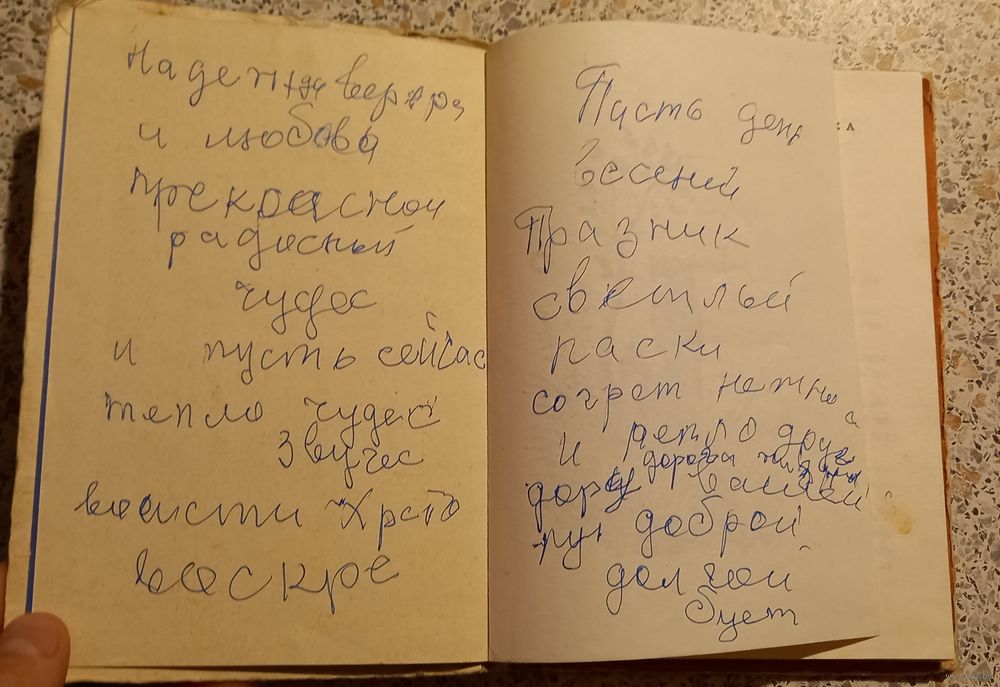 Надежда
и любовь
прекрасной
радосный
чудес
и пусть сейчас
тепло чудес
Звучес
воисти Христо
воскре
Пусть день
весений
Празник
светлый
паски
согрет нежно
и тепло друг
дорога
вашей
пут доброй
долгой
бует
КА